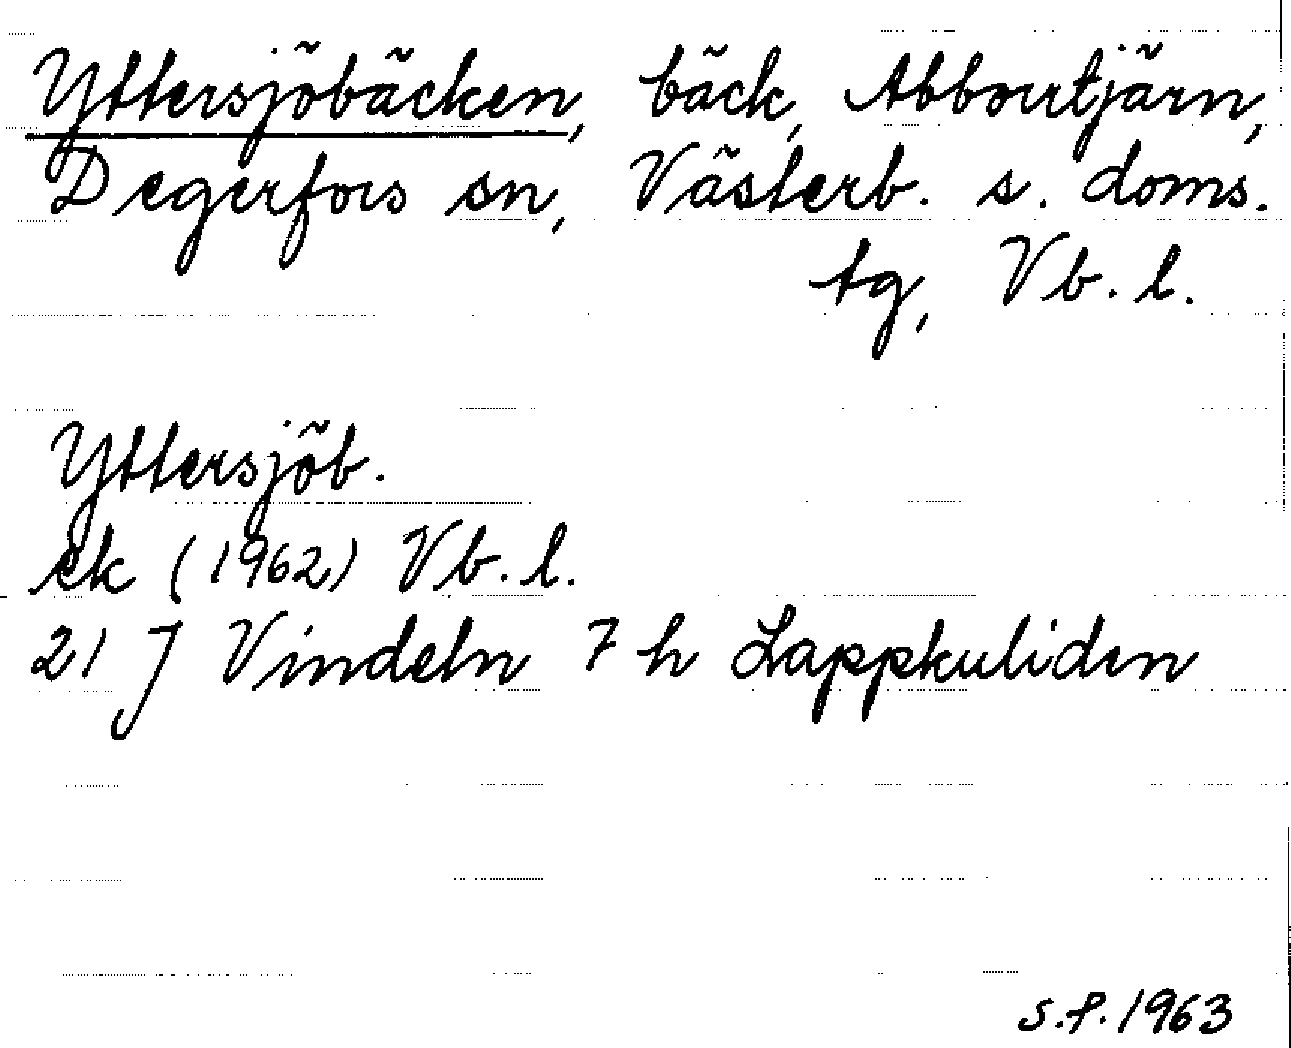 Yttersjöbäcken, bäck, Abborrtjärn,
Degerfors sn, Västerb. s. doms.
tg, Vb. l.
Yttersjöb.
ek (1962) Vb. l.
21 J Vindeln 7 h Lappkuliden
S.F. 1963